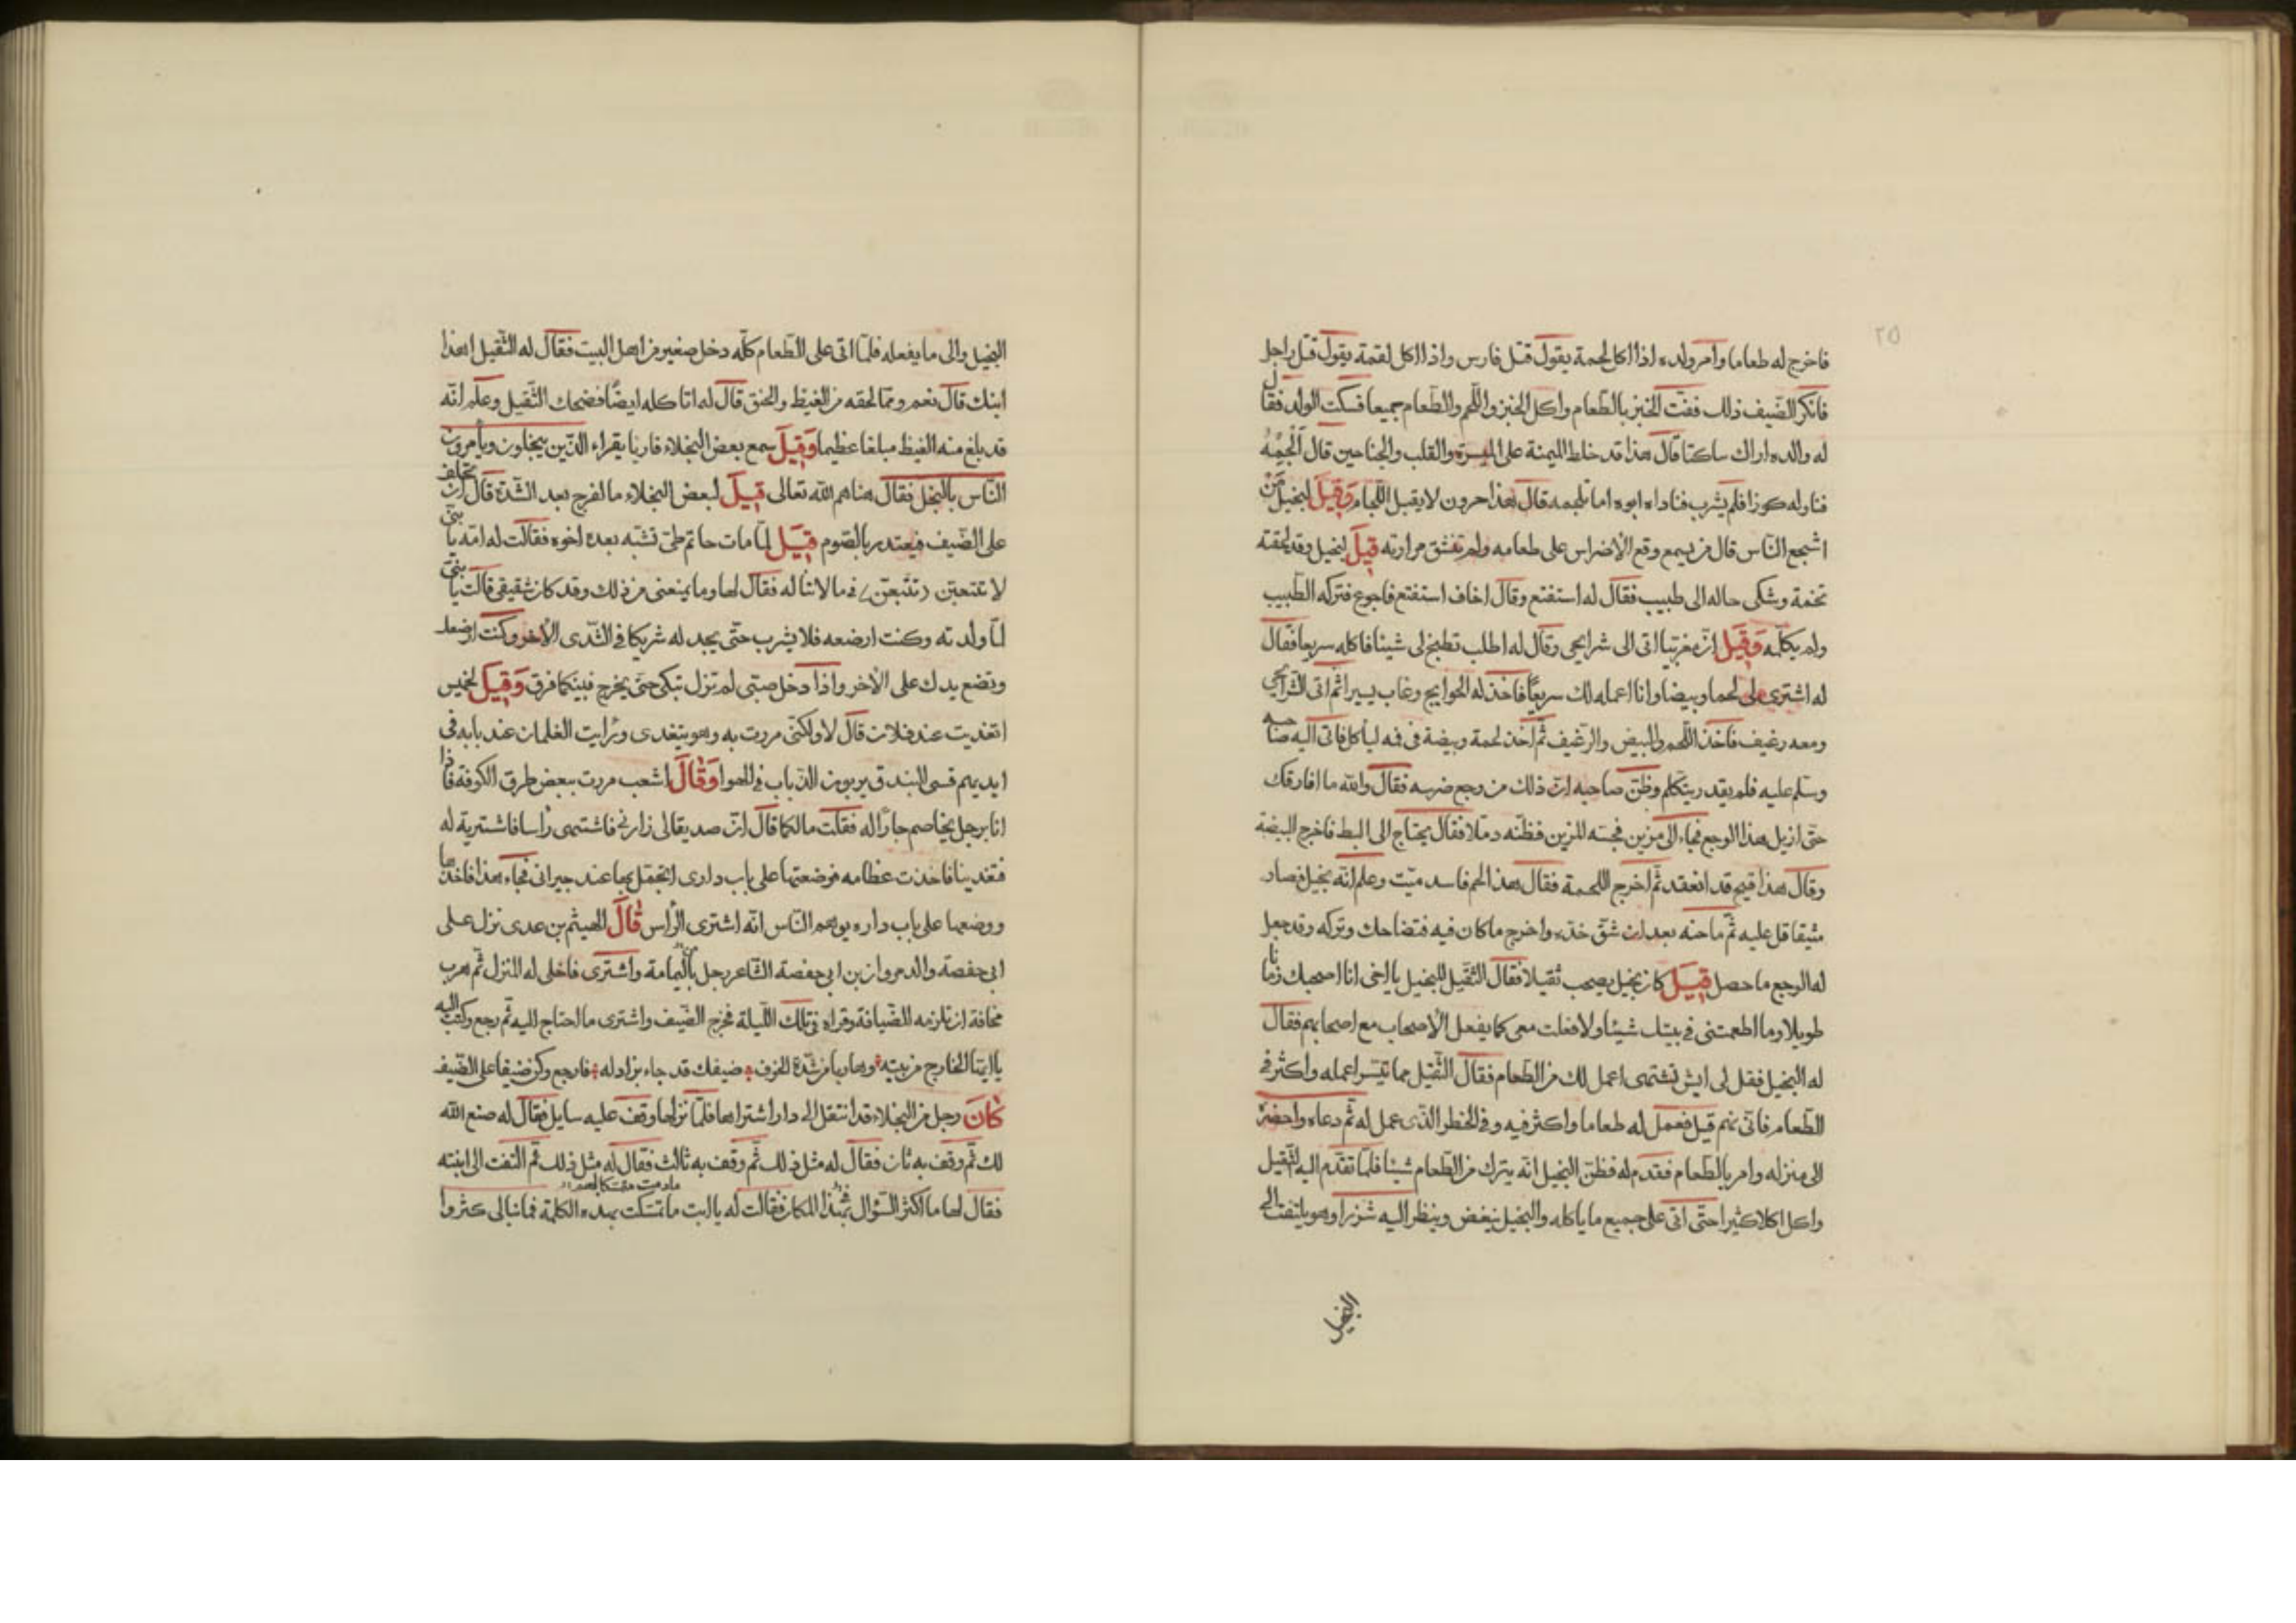 ٢٥
فاخرج له طعاما وامر ولده اذا اكل لحمة يقول قتل فارس واذا اكل لقمة يقول قتل راجل
فانكر الضيف ذلك ففت الخبز بالطعام واكل الخبز واللحم والطعام جميعا فسكت الولد فقال
له والده اراك ساكتا قال هذا قد خلط الميمنة على الميسرة والقلب والجناحين قال الجمه
فناوله كوزا فلم يشرب فناداه ابوه اما تلجمه قال هذا حرون لا يقبل اللجام وقيل لبخيل من
اشجع الناس قال من يسمع وقع الأضراس على طعامه ولم تنشق مرارته قيل لبخيل وقد لحقته
تخمة وشكى حاله الى طبيب فقال له استفتح وقال اخاف استفتح فاجوع فتركه الطبيب
ولم يكلمه وقيل ان مغربيا اتى الى شرايحى وقال له اطلب تطبخ لى شيئا فاكله سريعا فقال
له اشترى لى لحما وبيضا وانا اعمله لك سريعا فاخذ له الحوايج وغاب يسيرا ثم اتى الشرايحى
ومعه رغيف فاخذ اللحم والبيض والرغيف ثم اخذ لحمة وبيضة فى فمه ليأكل فاتى اليه صاحبه
وسلم عليه فلم يقدر يتكلم وظن صاحبه ان ذلك من وجع ضرسه فقال والله ما افارقك
حتى ازيل هذا الوجع فجاء الى مزين فجسه المزين فظنه دملا فقال يحتاج الى البط فاخرج البيضة
وقال هذا قيح قد انعقد ثم اخرج اللحمة فقال هذا لحم فاسد ميت وعلم انه بخيل فصار
مثيقا قل عليه ثم ماحنه بعد ان شق خده واخرج ما كان فيه فتضاحك وتركه وقد جعل
له الوجع ما حصل قيل كان بخيل يصحب ثقيلا فقال الثقيل للبخيل يا اخى انا اصحبك زمانا
طويلا وما اطعمتنى فى بيتك شيئا ولا فعلت معى كما يفعل الأصحاب مع اصحابهم فقال
له البخيل فقل لى ايش تشتهى اعمل لك من الطعام فقال الثقيل مما تيسر اعمله واكثر فى
الطعام فانى نهم قيل فعمل له طعاما واكثر فيه وفى الخطر الذى عمل له ثم دعاه واحضره
الى منزله وامر بالطعام فقدم له فظن البخيل انه يترك من الطعام شيئا فلما تقدم اليه الثقيل
واكل اكلا كثيرا حتى اتى على جميع ما ياكله والبخيل ينغض وينظر اليه شزرا وهو يلتفت الى
البخيل
البخيل والى ما يفعله فلما اتى على الطعام كله دخل صغير من اهل البيت فقال له الثقيل اهذا
ابنك قال نعم ومما لحقه من الغيظ والحنق قال له اتاكله ايضا فضحك الثقيل وعلم انه
قد بلغ منه الغيظ مبلغا عظيما وقيل سمع بعض البخلاء قاريا يقراء الذين يبخلون ويأمرون
الناس بالبخل فقال هناهم الله تعالى قيل لبعض البخلاء ما الفرج بعد الشدة قال ان تحلف
على الضيف فيعتدر بالصوم قيل لما مات حاتم طى تشبه بعده اخوه فقالت له امه يا بنى
لا تتعبن (تتبعن) فى ما لا تناله فقال لها وما يمنعنى من ذلك وقد كان شقيقى قالت يا بنى
لما ولدته وكنت ارضعه فلا يشرب حتى يجد له شريكا فى الثدى الاخر وكنت ارضعك
وتضع يدك على الأخر واذا دخل صبتى لم تزل تبكى حتى يخرج فبينكما فرق وقيل لخميس
اتغديت عند فلان قال لا ولكنى مررت به وهو يتغدى ورايت الغلمان عند بابه فى
ايديهم قسى البندق يربون الذباب فى الهوا وقال اشعب مررت ببعض طرق الكوفة فاذا
انا برجل يخاصم جارا له فقلت مالكما قال ان صديقا لى زارنى فاشتهى رأسا فاشتريته له
فتغدينا فاخذت عظامه فوضعتها على باب دارى اتجمل بها عند جيرانى فجاء هذا فاخذها
ووضعها على باب داره يوهم الناس انه اشترى الرأس قال الهيثم بن عدى نزل على
ابى حفصة والد مروان بن ابى حفصة الشاعر رجل من باليمامة واشترى فاخلى له المنزل ثم هرب
مخافة ان تلزمه الضيافة وقراه فى تلك الليلة فخرج الضيف واشترى ما احتاج اليه ثم رجع وكتب اليه
يا ايها الخارج من بيته وهاربا من شدة الخوف ضيفك قد جاء بزاد له فارجع وكن ضيفا على الضيف
كان رجل من البخلاء قد انتقل الى دار اشتراها فلما نزلها وقف عليه سايل فقال له صنع الله
لك ثم وقف به ثان فقال له مثل ذلك ثم وقف به ثالث فقال له مثل ذلك ثم التفت الى ابنته
فقال لها ما اكثر السؤال بهذا المكان فقالت له يا ابت ما تمسكت بهذه الكلمة فما نبالى كثروا